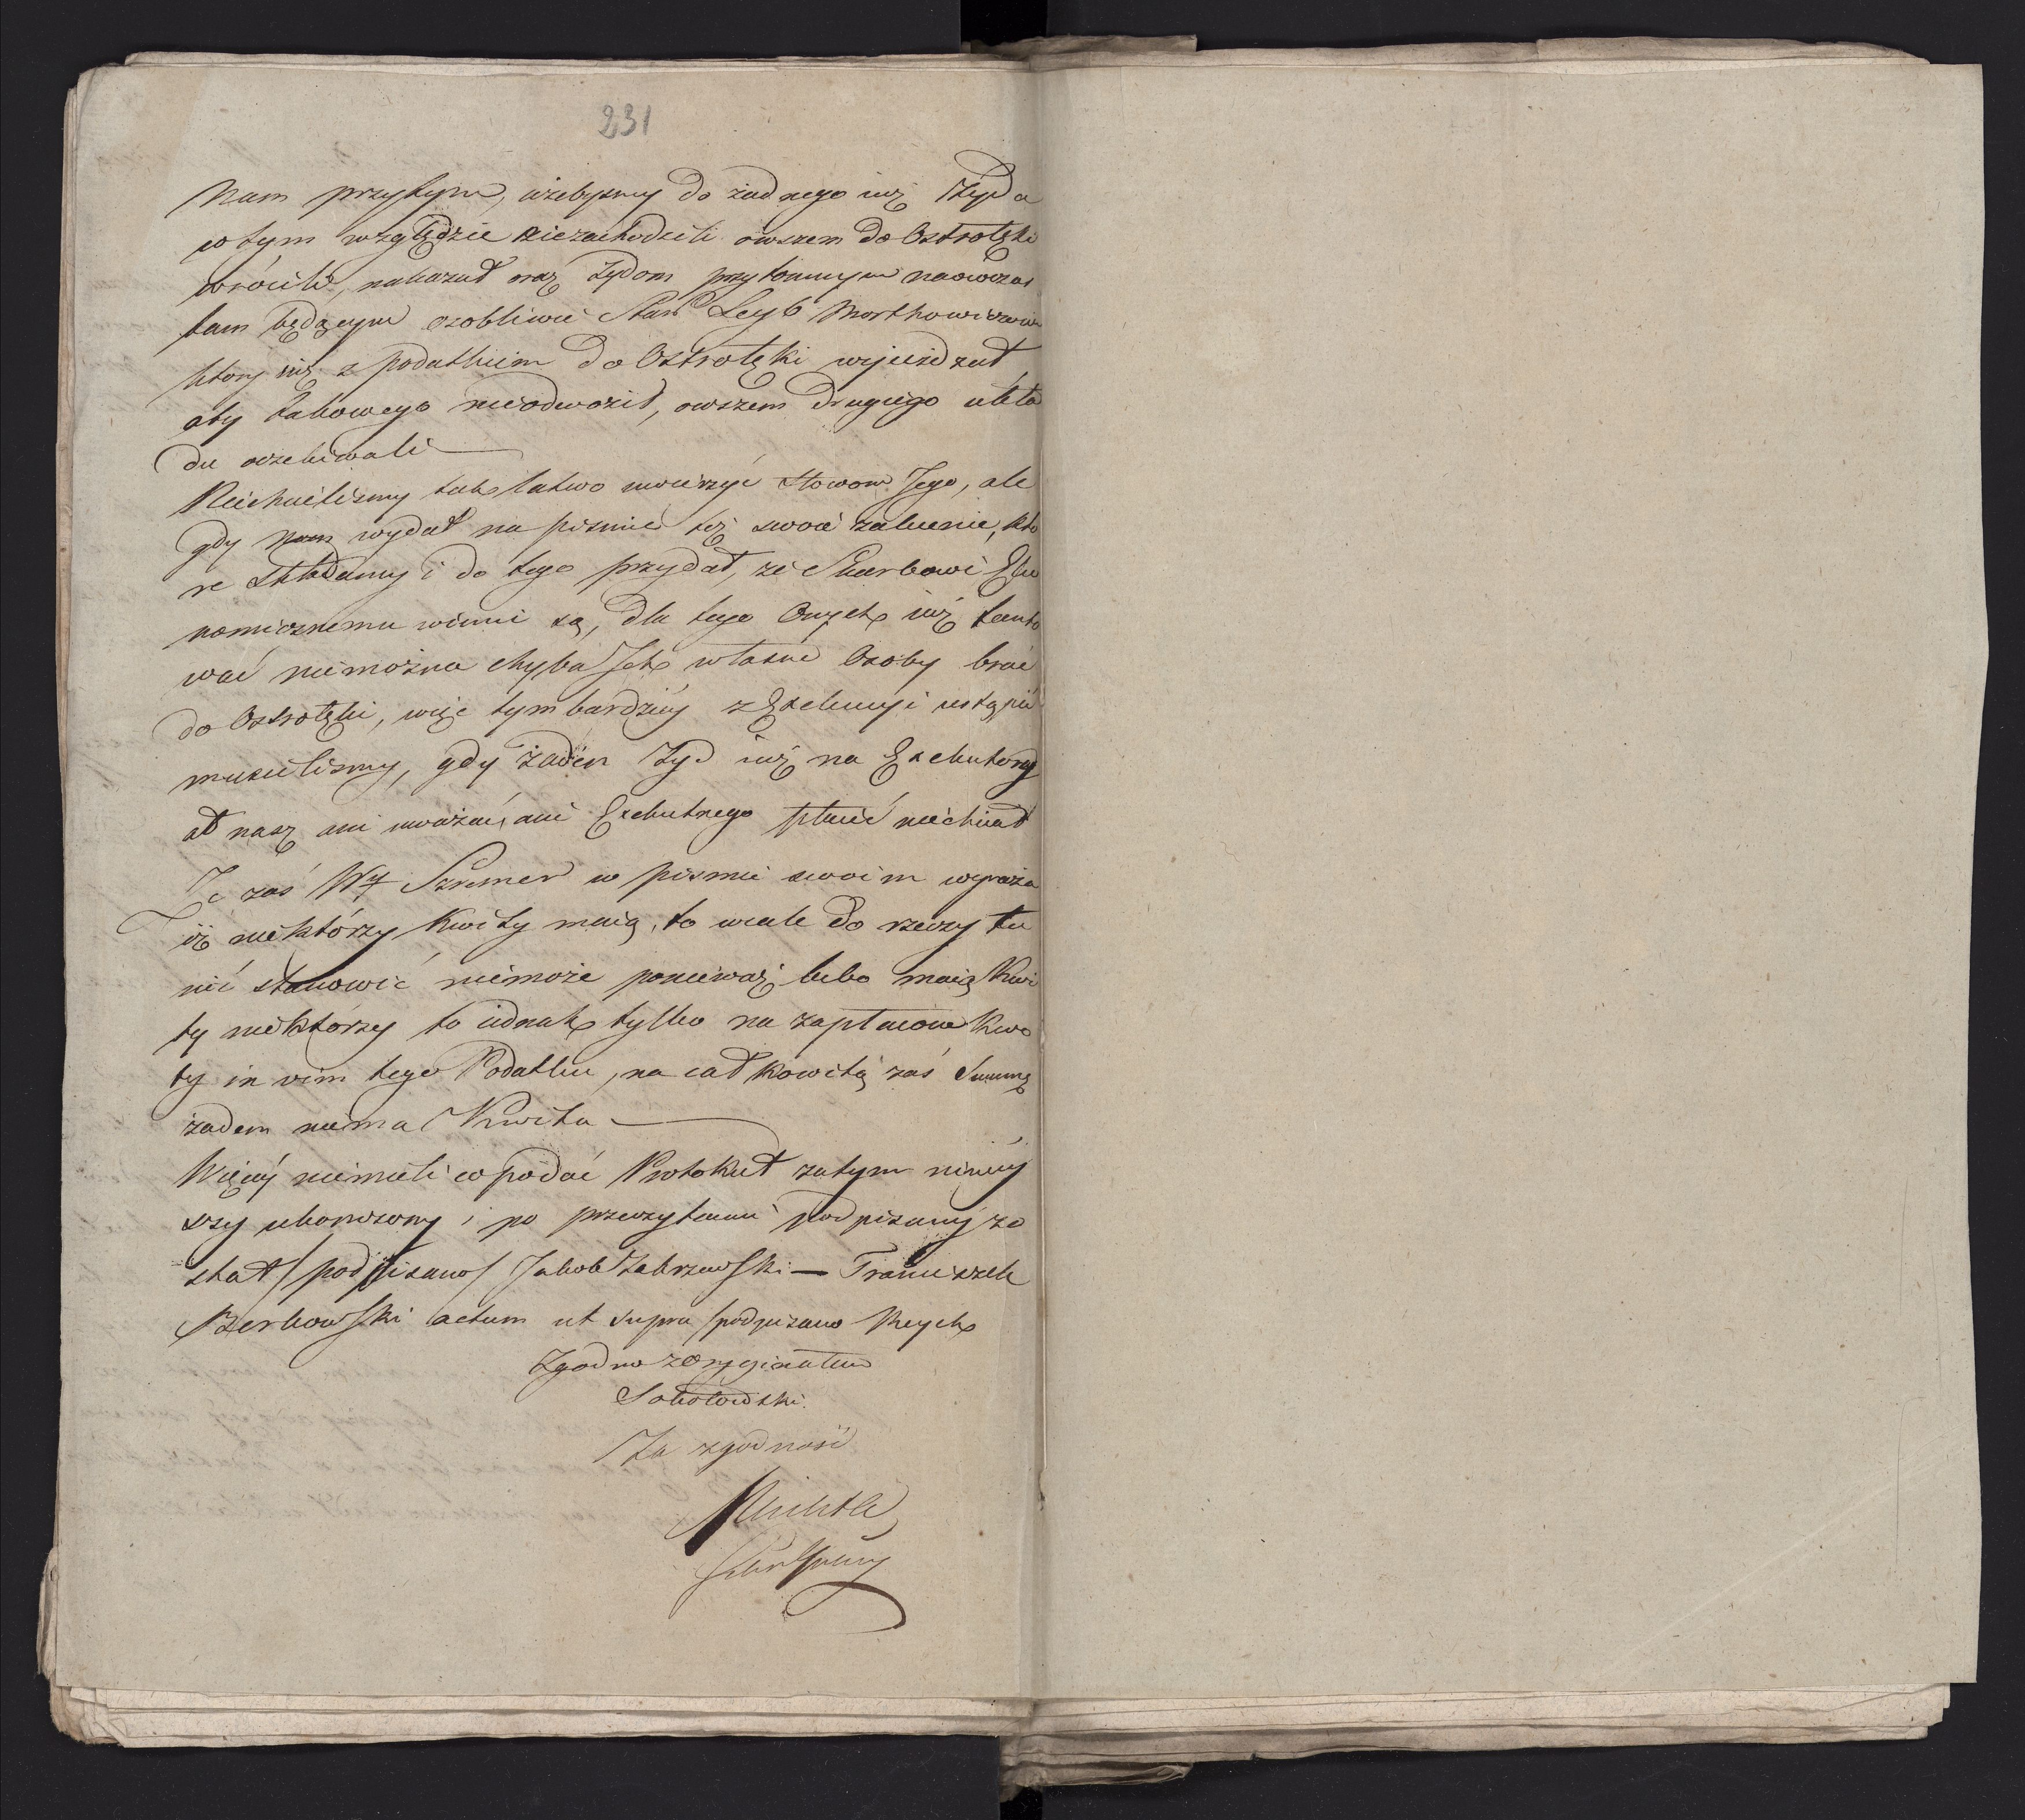 231
Nam przytym, iżebyśmy do żadnego iuż Żyda
w tym względzie niezachodzili owszem do Ostrołęki
wrócili, nakazał oraz Żydom przytomnym naówczas
tam będącym osobliwie Star. Leyb Morthowiczowi
który iuż z podatkiem do Ostrołęki wyjeżdżał
aby takowego nieodwoził, owszem drugiego ukła
du oczekiwali
Niechcieliśmy tak łatwo uwierzyć słowom Jego, ale
gdy nam wydał na piśmie też swoie zalecenie, któ
re składamy i do tego przydał, że Skarbowi Eko
nomicznemu winni są, dla tego Onych iuż fanto
wać niemożna chyba Ich własne Osoby brać
do Ostrołęki, więc tym bardziey z Exekucyi ustąpić
musieliśmy, gdy żaden Żyd iuż na Exekutory
ał nasz ani uważać, ani Exekutnego płacić niechciał
Że zaś WJ Szremer w piśmie swoim wyraża
iż niektórzy Kwity maią, to wcale do rzeczy tu
nic stanowić niemoże ponieważ lubo maią Kwi
ty niektórzy to iednak tylko na zapłacone Kwo
ty in vim tego Podatku, na całkowitą zaś Summę
żaden niema Kwitu
Więcey niemieli co podać Protokuł zatym niniey
szy ukończony i po przeczytaniu podpisany zo
stał /podpisano/ Jakob Zabrzewski — Franciszek
Berkowski actum ut supra /podpisano Reych
Zgodno z Oryginałem
Sokołowski
Za zgodność